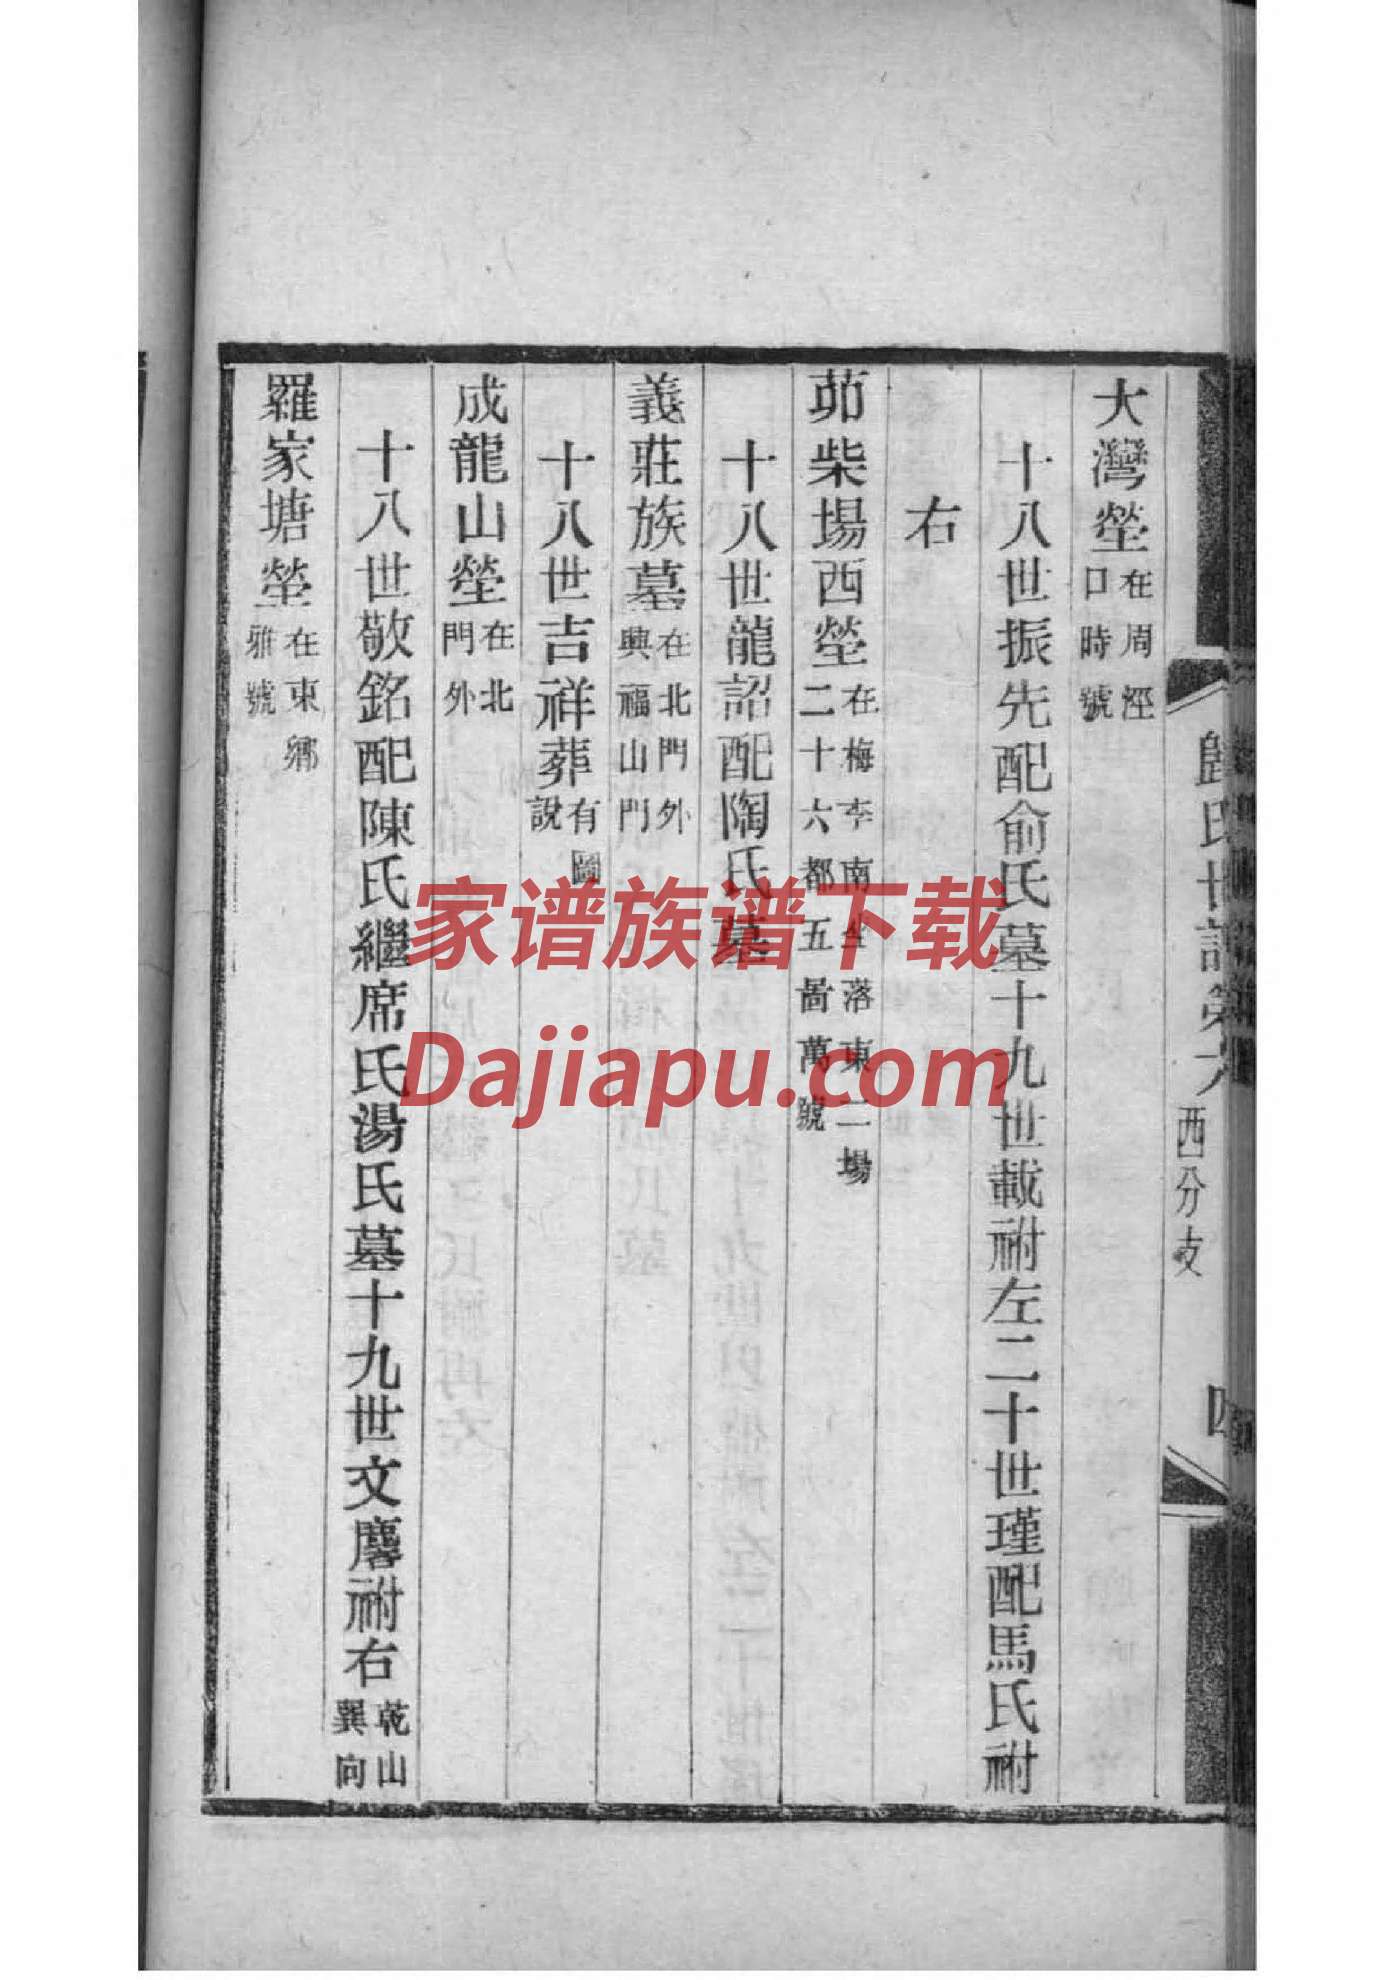 大灣塋在周涇口時號
十八世振先配俞氏墓十九世載祔左二十世瑾配馬氏祔
右
茆柴場西塋在梅李南 落東二場二十六都五啚萬號
十八世龍詔配陶氏墓
義莊族墓在北門外興福山門
十八世吉祥葬有圖說
成龍山塋在北門外
十八世敬銘配陳氏繼席氏湯氏墓十九世文麐祔右乾山巽向
羅家塘塋在東鄉雅號
歸氏世譜 西分支
四
家谱族谱下载
Dajiapu.com